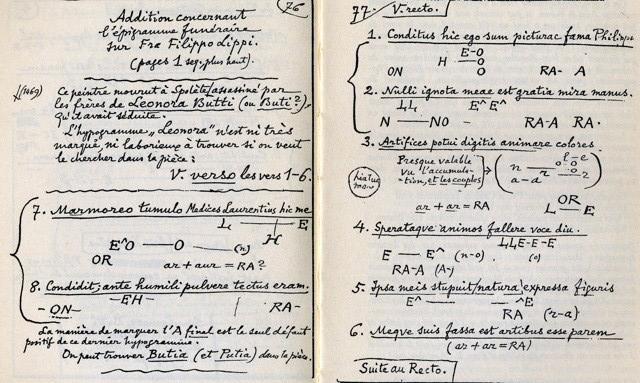 76
Addition concernant
l'épigramme funéraire
sur Fra Filippo Lippi.
(pages 1 seq, plus haut).
(1469) Ce peintre mourut à Spolète/assassiné par
les frères de Leonora Butti (ou Buti?),
qu'il avait séduite.
L'hypogramme „Leonora" n'est ni très
marqué, ni laborieux à trouver si on veut
le chercher dans la pièce:
V. verso les vers 1-6.
7. Marmoreo tumulo Medices Laurentius hic me
L — E
H
E^O — O — (n)
OR
ar + aur = RA?
8. Condidit; ante humili pulvere tectus eram.
-ON- —EH— RA-
La manière de marquer l'A final est le seul défaut
positif de ce dernier hypogramme.
On peut trouver Butia (et Putia) dans la pièce.
77. V. recto.
1. Conditus hic ego sum picturae fama Philippus
E-O
H O
ON O RA- A
2. Nulli ignota meae est gratia mira manus.
LL E^ E^
N — NO — RA-A RA.
3. Artifices potui digitis animare colores
hiatus
Presque valable
vu l'accumula-
tion, et les couples
ar + ar = RA
OR
L E
4. Sperataque animos fallere voce diu.
LLE-E-E
E — E^ (n-o) (o)
RA-A (A-)
5. Ipsa meis stupuit/natura expressa figuris
E^ — ^E
RA (r-a)
6. Meqve suis fassa est artibus esse parem
(ar + ar = RA)
Suite au Recto.